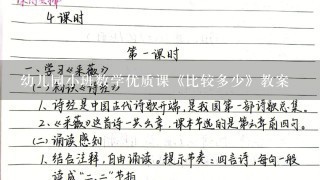 课时安排
4课时
第一课时
一、学习《采薇》
幼儿园小班数学优质课《比较多少》教案
(一)知识《诗经》
1、诗经是中国古代诗歌开端,是我国第一部诗歌总集。
2、《采薇》这首诗一共六章,课本节选的是第六章前四句。
(二)诵读感知
1、结合注释,自由诵读。提示节奏:四言诗,每句一般
读成“二、二”节拍